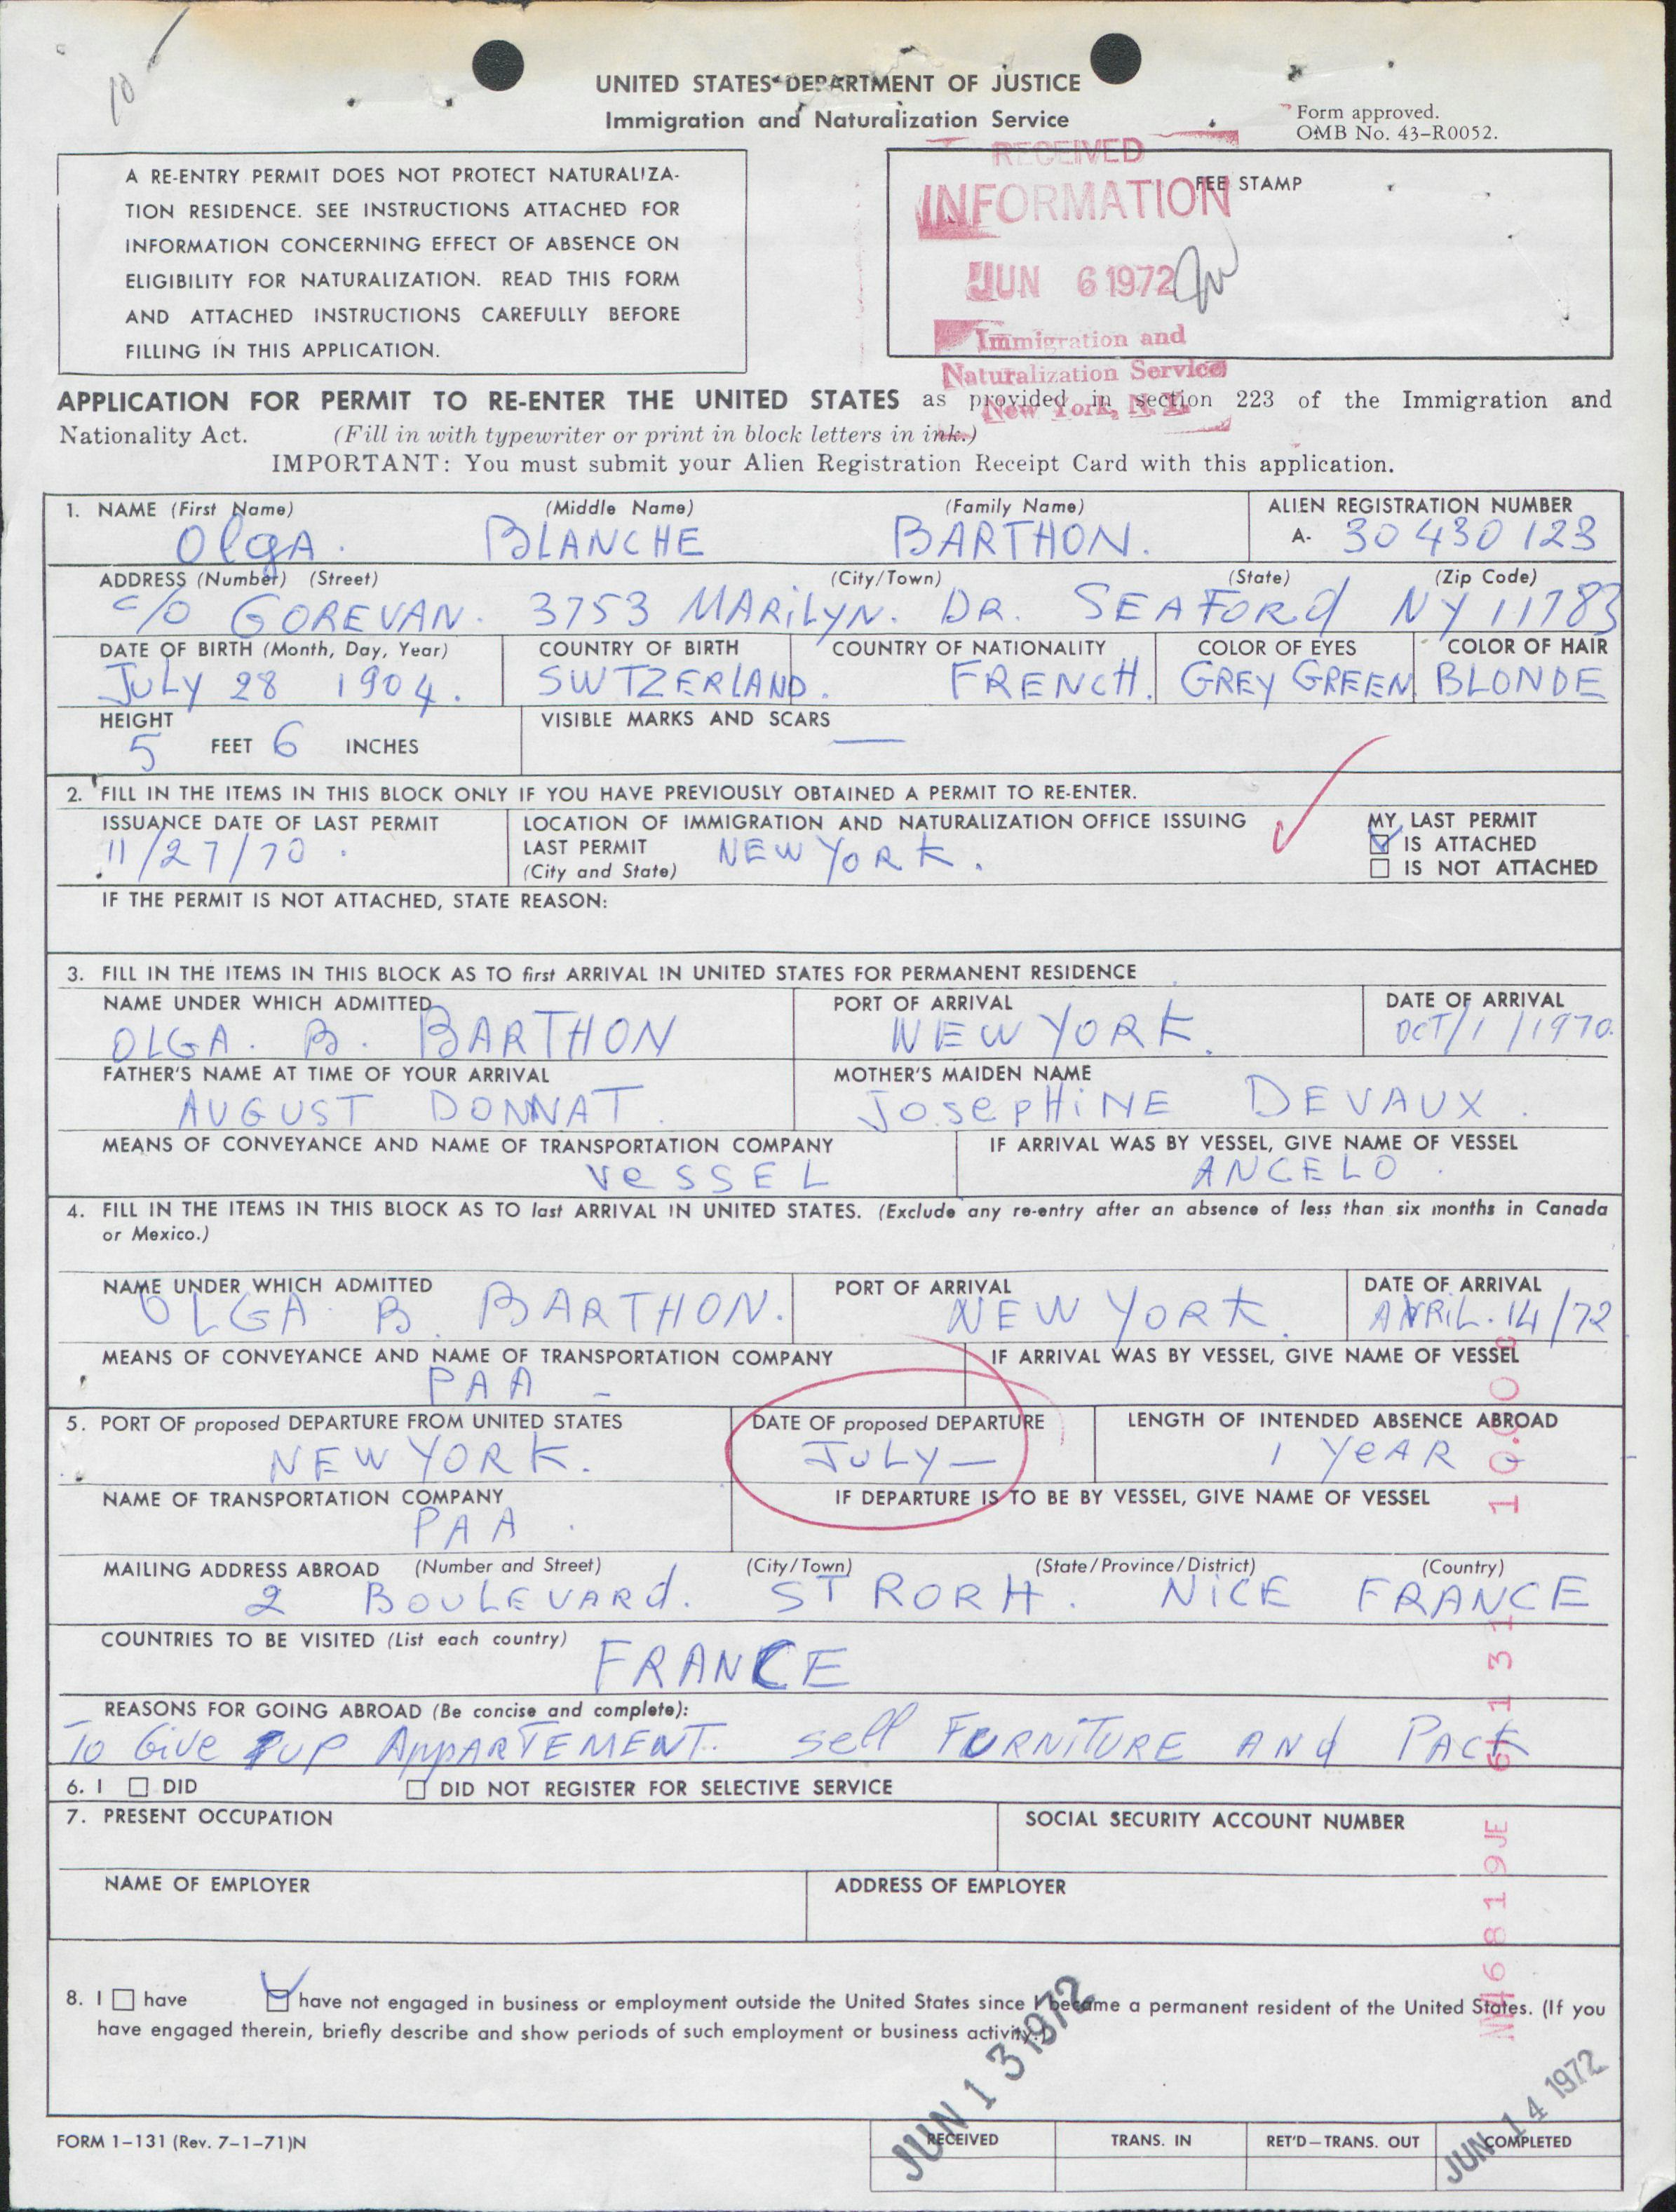 10
UNITED STATES DEPARTMENT OF JUSTICE
Immigration and Naturalization Service
Form approved.
OMB No. 43-R0052.
A RE-ENTRY PERMIT DOES NOT PROTECT NATURALIZA-
TION RESIDENCE. SEE INSTRUCTIONS ATTACHED FOR
INFORMATION CONCERNING EFFECT OF ABSENCE ON
ELIGIBILITY FOR NATURALIZATION. READ THIS FORM
AND ATTACHED INSTRUCTIONS CAREFULLY BEFORE
FILLING IN THIS APPLICATION.
FEE STAMP
RECEIVED
INFORMATION
JUN 6 1972
Immigration and
Naturalization Service
New York, N.Y.
APPLICATION FOR PERMIT TO RE-ENTER THE UNITED STATES as provided in section 223 of the Immigration and
Nationality Act. (Fill in with typewriter or print in block letters in ink.)
IMPORTANT: You must submit your Alien Registration Receipt Card with this application.
1. NAME (First Name) (Middle Name) (Family Name) ALIEN REGISTRATION NUMBER
OlgA. BLANCHE BARTHON. A- 30 430 123
ADDRESS (Number) (Street) (City/Town) (State) (Zip Code)
c/o GOREVAN. 3753 MARiLYN. DR. SEAFORd NY 11783
DATE OF BIRTH (Month, Day, Year) COUNTRY OF BIRTH COUNTRY OF NATIONALITY COLOR OF EYES COLOR OF HAIR
JULY 28 1904. SWTZERLAND. FRENCH. GREY GREEN BLONDE
HEIGHT VISIBLE MARKS AND SCARS
5 FEET 6 INCHES —
2. FILL IN THE ITEMS IN THIS BLOCK ONLY IF YOU HAVE PREVIOUSLY OBTAINED A PERMIT TO RE-ENTER.
ISSUANCE DATE OF LAST PERMIT LOCATION OF IMMIGRATION AND NATURALIZATION OFFICE ISSUING MY LAST PERMIT
11/27/70. LAST PERMIT NEW YORK. IS ATTACHED
(City and State) IS NOT ATTACHED
IF THE PERMIT IS NOT ATTACHED, STATE REASON:
3. FILL IN THE ITEMS IN THIS BLOCK AS TO first ARRIVAL IN UNITED STATES FOR PERMANENT RESIDENCE
NAME UNDER WHICH ADMITTED PORT OF ARRIVAL DATE OF ARRIVAL
OLGA. B. BARTHON NEW YORK. OCT/1/1970.
FATHER'S NAME AT TIME OF YOUR ARRIVAL MOTHER'S MAIDEN NAME
AUGUST DONNAT. JosePHiNE DEVAUX.
MEANS OF CONVEYANCE AND NAME OF TRANSPORTATION COMPANY IF ARRIVAL WAS BY VESSEL, GIVE NAME OF VESSEL
VeSSEL ANGELO.
4. FILL IN THE ITEMS IN THIS BLOCK AS TO last ARRIVAL IN UNITED STATES. (Exclude any re-entry after an absence of less than six months in Canada
or Mexico.)
NAME UNDER WHICH ADMITTED PORT OF ARRIVAL DATE OF ARRIVAL
OLGA B. BARTHON. NEW YORK. AVRiL. 14/72
MEANS OF CONVEYANCE AND NAME OF TRANSPORTATION COMPANY IF ARRIVAL WAS BY VESSEL, GIVE NAME OF VESSEL
PAA –
5. PORT OF proposed DEPARTURE FROM UNITED STATES DATE OF proposed DEPARTURE LENGTH OF INTENDED ABSENCE ABROAD
NEW YORK. JULY — 1 YeAR
NAME OF TRANSPORTATION COMPANY IF DEPARTURE IS TO BE BY VESSEL, GIVE NAME OF VESSEL
PAA.
MAILING ADDRESS ABROAD (Number and Street) (City/Town) (State/Province/District) (Country)
2 BOULEVARd. ST RORH. NiCE FRANCE
COUNTRIES TO BE VISITED (List each country)
FRANCE
REASONS FOR GOING ABROAD (Be concise and complete):
To Give UP APPARTEMENT. sell FURNiTURE ANd PACK
6. I DID DID NOT REGISTER FOR SELECTIVE SERVICE
7. PRESENT OCCUPATION SOCIAL SECURITY ACCOUNT NUMBER
NAME OF EMPLOYER ADDRESS OF EMPLOYER
8. I have have not engaged in business or employment outside the United States since I became a permanent resident of the United States. (If you
have engaged therein, briefly describe and show periods of such employment or business activity.)
JUN 13 1972
JUN 14 1972
FORM I-131 (Rev. 7-1-71)N RECEIVED TRANS. IN RET'D—TRANS. OUT COMPLETED